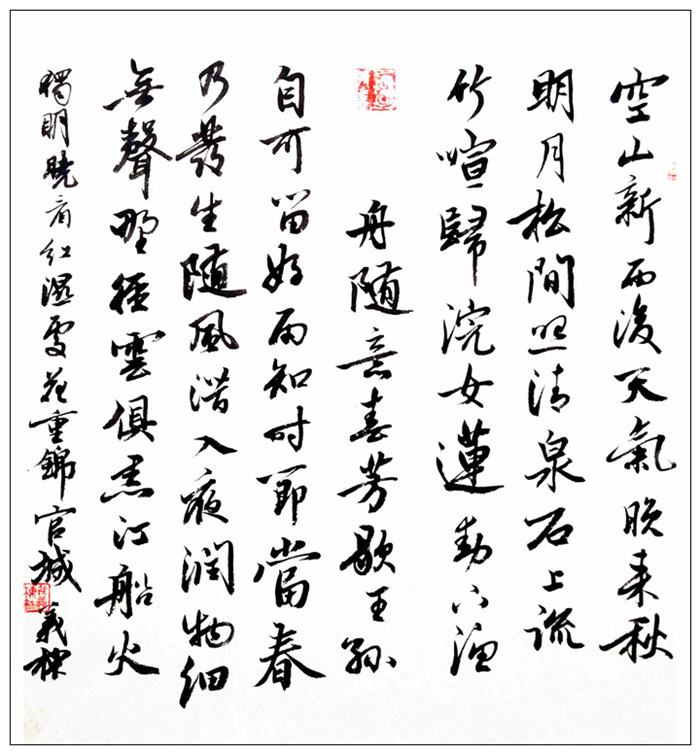 空山新雨後天氣晚来秋
明月松間照清泉石上流
竹喧歸浣女蓮動下漁
舟随意春芳歇王孫
自可留好雨知时節當春
乃發生随風潜入夜潤物细
無聲野徑雲俱黑江船火
獨明曉看红濕處花重錦官城 義